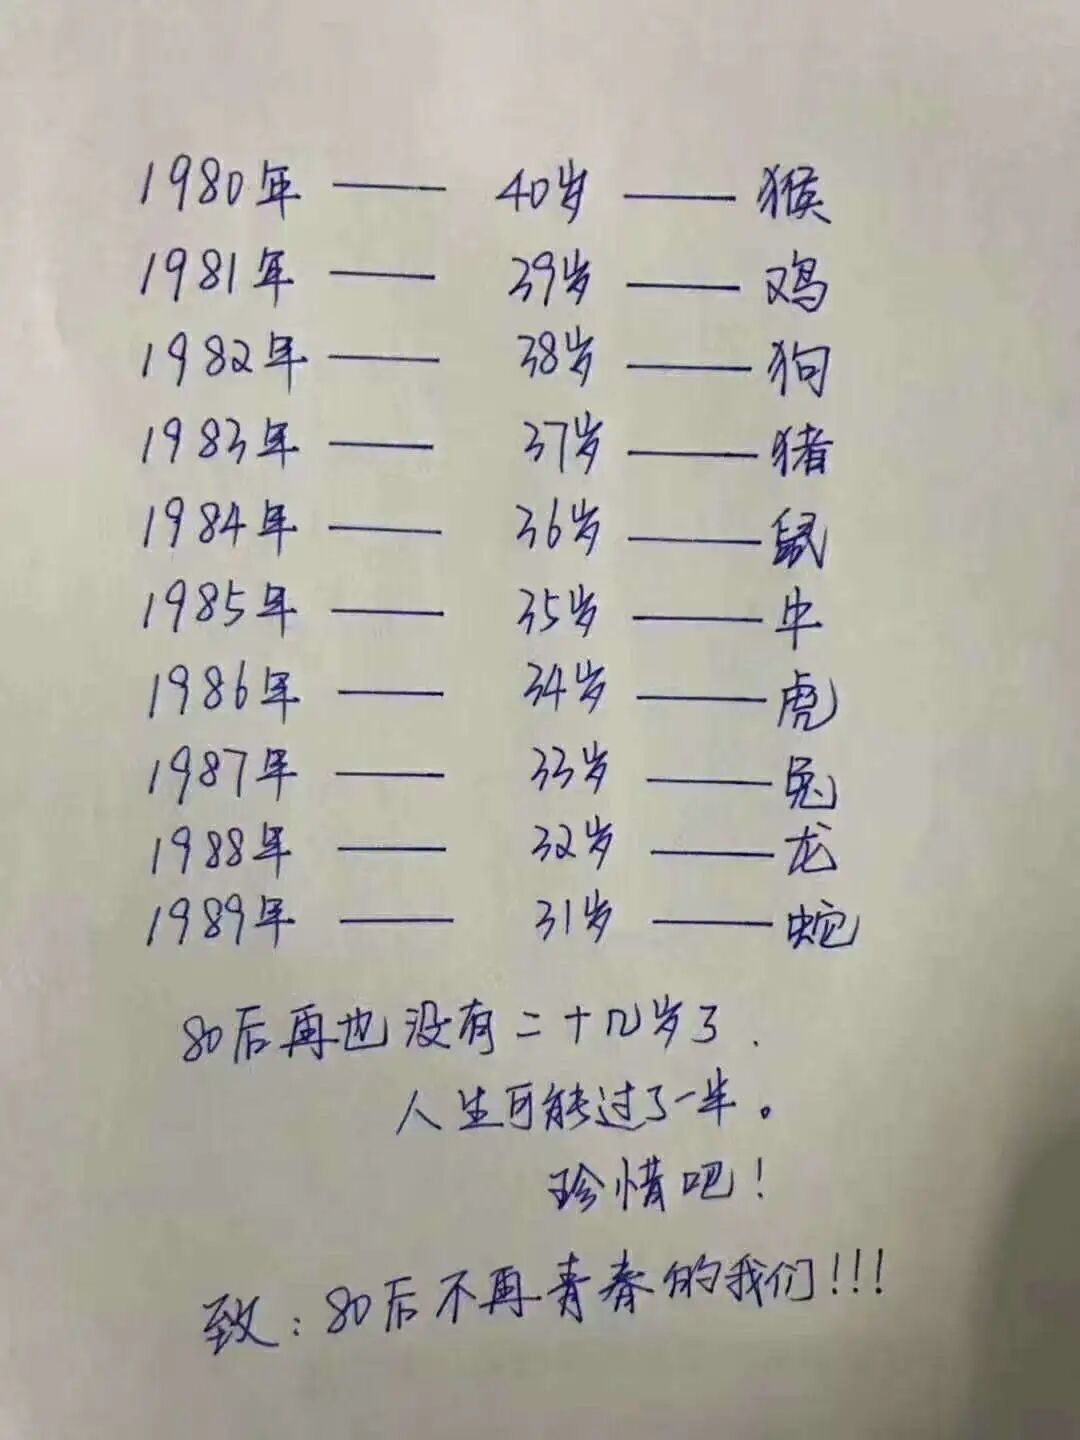 1980年 —— 40岁 —— 猴
1981年 —— 39岁 —— 鸡
1982年 —— 38岁 —— 狗
1983年 —— 37岁 —— 猪
1984年 —— 36岁 —— 鼠
1985年 —— 35岁 —— 牛
1986年 —— 34岁 —— 虎
1987年 —— 33岁 —— 兔
1988年 —— 32岁 —— 龙
1989年 —— 31岁 —— 蛇
80后再也没有二十几岁了.
人生可能过了一半。
珍惜吧!
致:80后不再青春的我们!!!